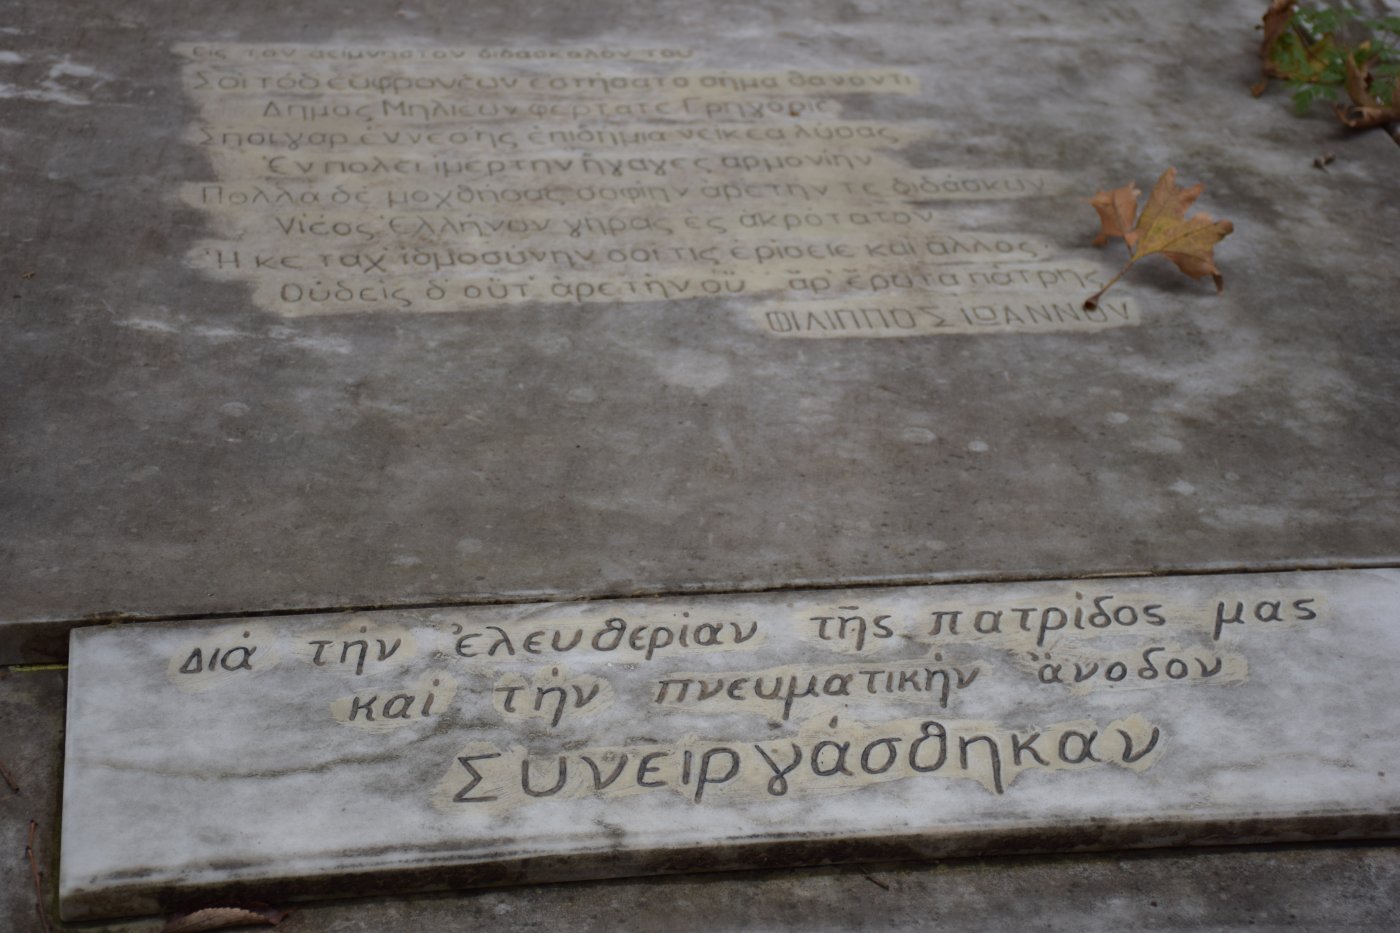 Εἰς τὸν ἀείμνηστον διδάσκαλόν του
Σοὶ τόδ ἐϋφρονέων ἐστήσατο σῆμα θανόντι
Δῆμος Μηλιέων φέρτατε Γρηγόριε
Σῇσι γὰρ ἐννεσίῃς ἐπιδήμια νείκεα λύσας
Ἐν πόλει ἱμερτὴν ἤγαγες ἁρμονίην
Πολλὰ δὲ μοχθήσας σοφίην ἀρετήν τε διδάσκων
Υἱέος Ἑλλήνων γῆρας ἐς ἀκρότατον
Ἤ κε τάχ ἰδμοσύνην σοί τις ἐρίσειε καὶ ἄλλος
Οὐδεὶς δ οὔτ ἀρετὴν οὔ ἄρ ἔρωτα πάτρης
ΦΙΛΙΠΠΟΣ ΙΩΑΝΝΟΥ
Διά τήν ἐλευθερίαν τῆς πατρίδος μας
καί τήν πνευματικήν ἄνοδον
Συνειργάσθηκαν